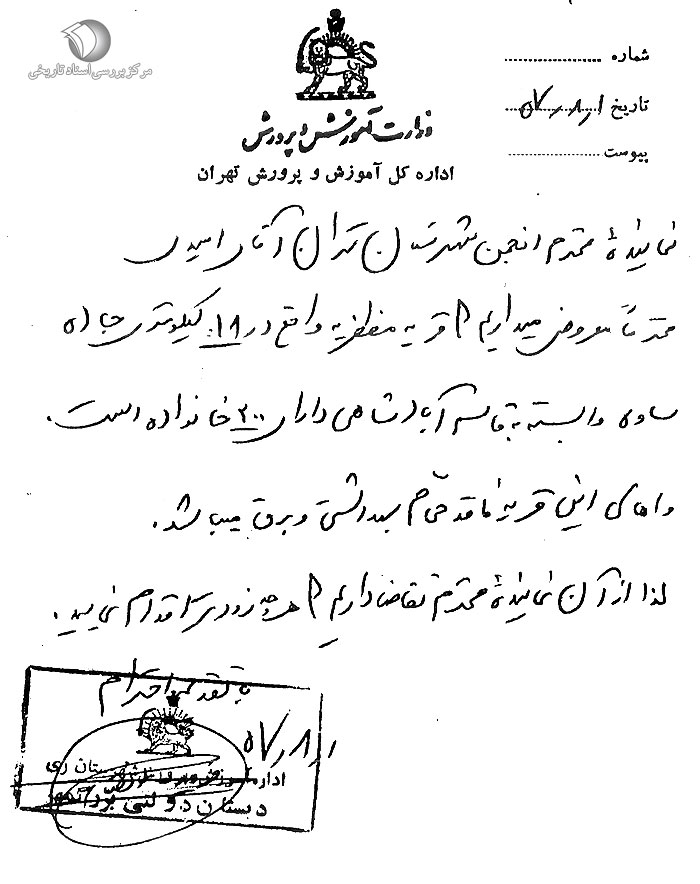 مرکز بررسی اسناد تاریخی
وزارت آموزش و پرورش
اداره کل آموزش و پرورش تهران
شماره
تاریخ ۵۷٫۸٫۱
پیوست
نمایندهٔ محترم انجمن شهرستان تهران آقای امیدی
محترماً معروض میداریم که قریه مظفریه واقع در ۱۸ کیلومتری جاده
ساوه وابسته بقاسم آباد شاهی دارای ۳۰۰ خانواده است.
و اهالی این قریه فاقد حمام بهداشتی و برق میباشد.
لذا از آن نمایندهٔ محترم تقاضا داریم که هر چه زودتر اقدام نمایید.
با تقدیم احترام
۵۷٫۸٫۱
اداره آموزش و پرورش شهرستان ری
دبستان دولتی